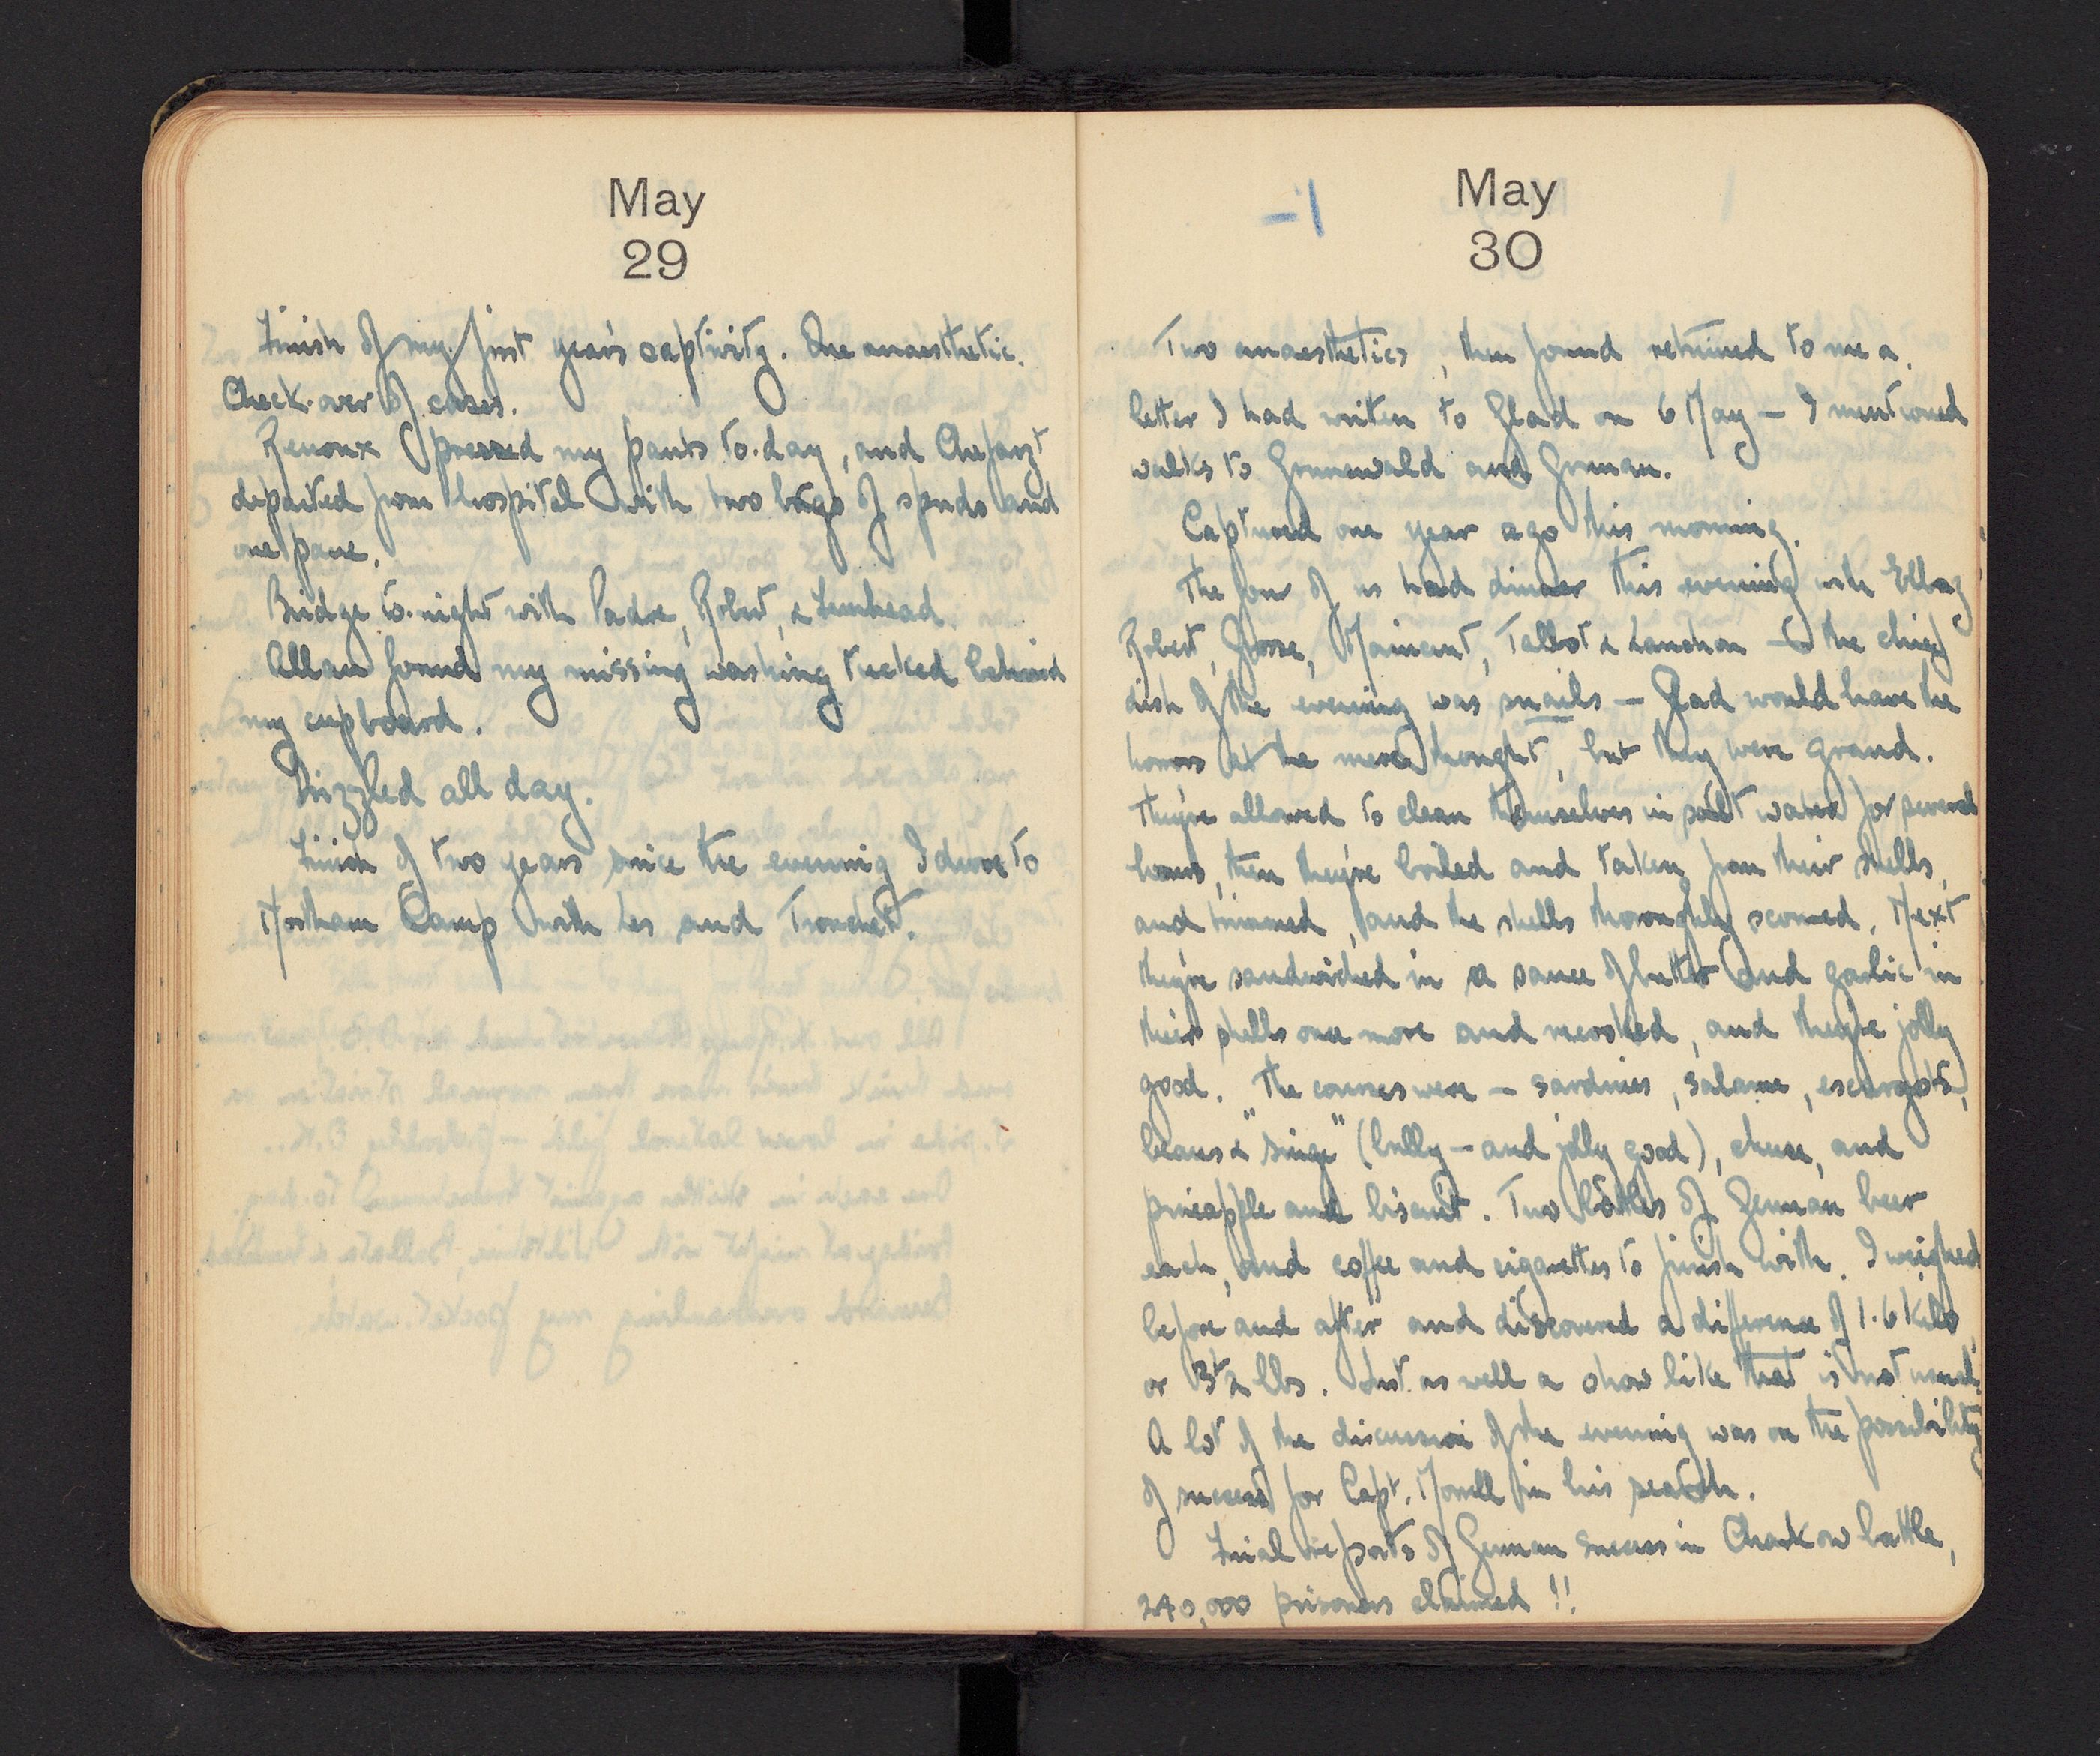 May
29
Finish of my first year's captivity. One anaesthetic.
Check-over of cases.
Renoux pressed my pants to-day, and
departed from hospital with two bags of spuds and
one
Bridge to-night with Padre, Robert, &
Allan found my missing washing tucked behind
my cupboard.
Drizzled all day.
Finish of two years since the evening I drove to
Northam Camp with Les and
-1
May
30
Two anaesthetics, then found returned to me a
letter I had written to Glad on 6 May — I mentioned
walks to Grunewald and
Captured one year ago this morning.
The four of us had dinner this evening with
Robert, Talbot & — the chief
dish of the evening was snails — Glad would have the
horrors at the mere thought, but they were grand.
They're allowed to clean themselves in salt water for several
hours, then they're boiled and taken from their shells,
and trimmed, and the shells thoroughly scoured. Next
they're sandwiched in a sauce of butter and garlic in
their shells once more and recooked, and they're jolly
good. The courses were — sardines, salame, escargots,
beans & "singe" (bully — and jolly good), cheese, and
pineapple and biscuit. Two bottles of German beer
each, and coffee and cigarettes to finish with. I weighed
before and after and discovered a difference of 1.6 kilo
or 3½ lbs. Just as well a show like that is not usual.
A lot of the discussion of the evening was on the possibility
of success for Capt. Morrell in his search.
Final reports of German success in Charkow battle,
240,000 prisoners claimed !!